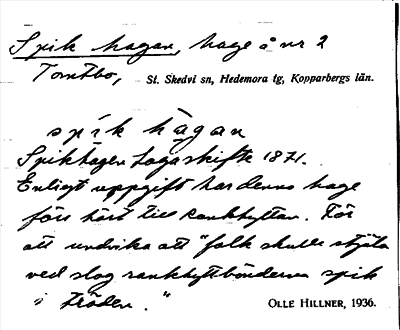 Spik hagan, hage å nr 2
Tomtbo, St. Skedvi sn, Hedemora tg, Kopparbergs län.
spik hägan
Spikhagen Lagaskifte 1871.
Enligt uppgift har denna hage
förr hört till Rankhyttan. För
att undvika att "folk skulle stjäla
ved slog rankhyttbönderna spik
i träden."
OLLE HILLNER, 1936.